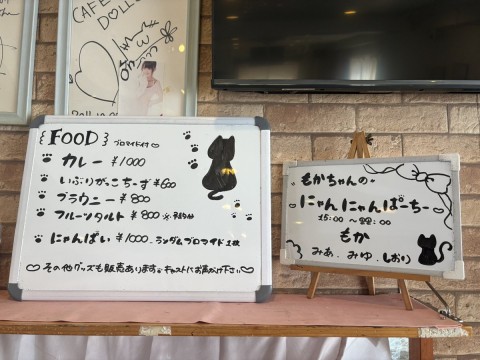 CAFE
DOLL
{FOOD} ブロマイド付♡
カレー ¥1000
いぶりがっこチーズ ¥600
ブラウニー ¥800
フルーツタルト ¥800
にゃんぱい ¥1000 ランダムブロマイド1枚
♡その他グッズも販売あります。キャストにお声がけ下さい♡
もかちゃんの
にゃんにゃんぱーちー
15:00 〜
もか
みあ、みゆ、しおり